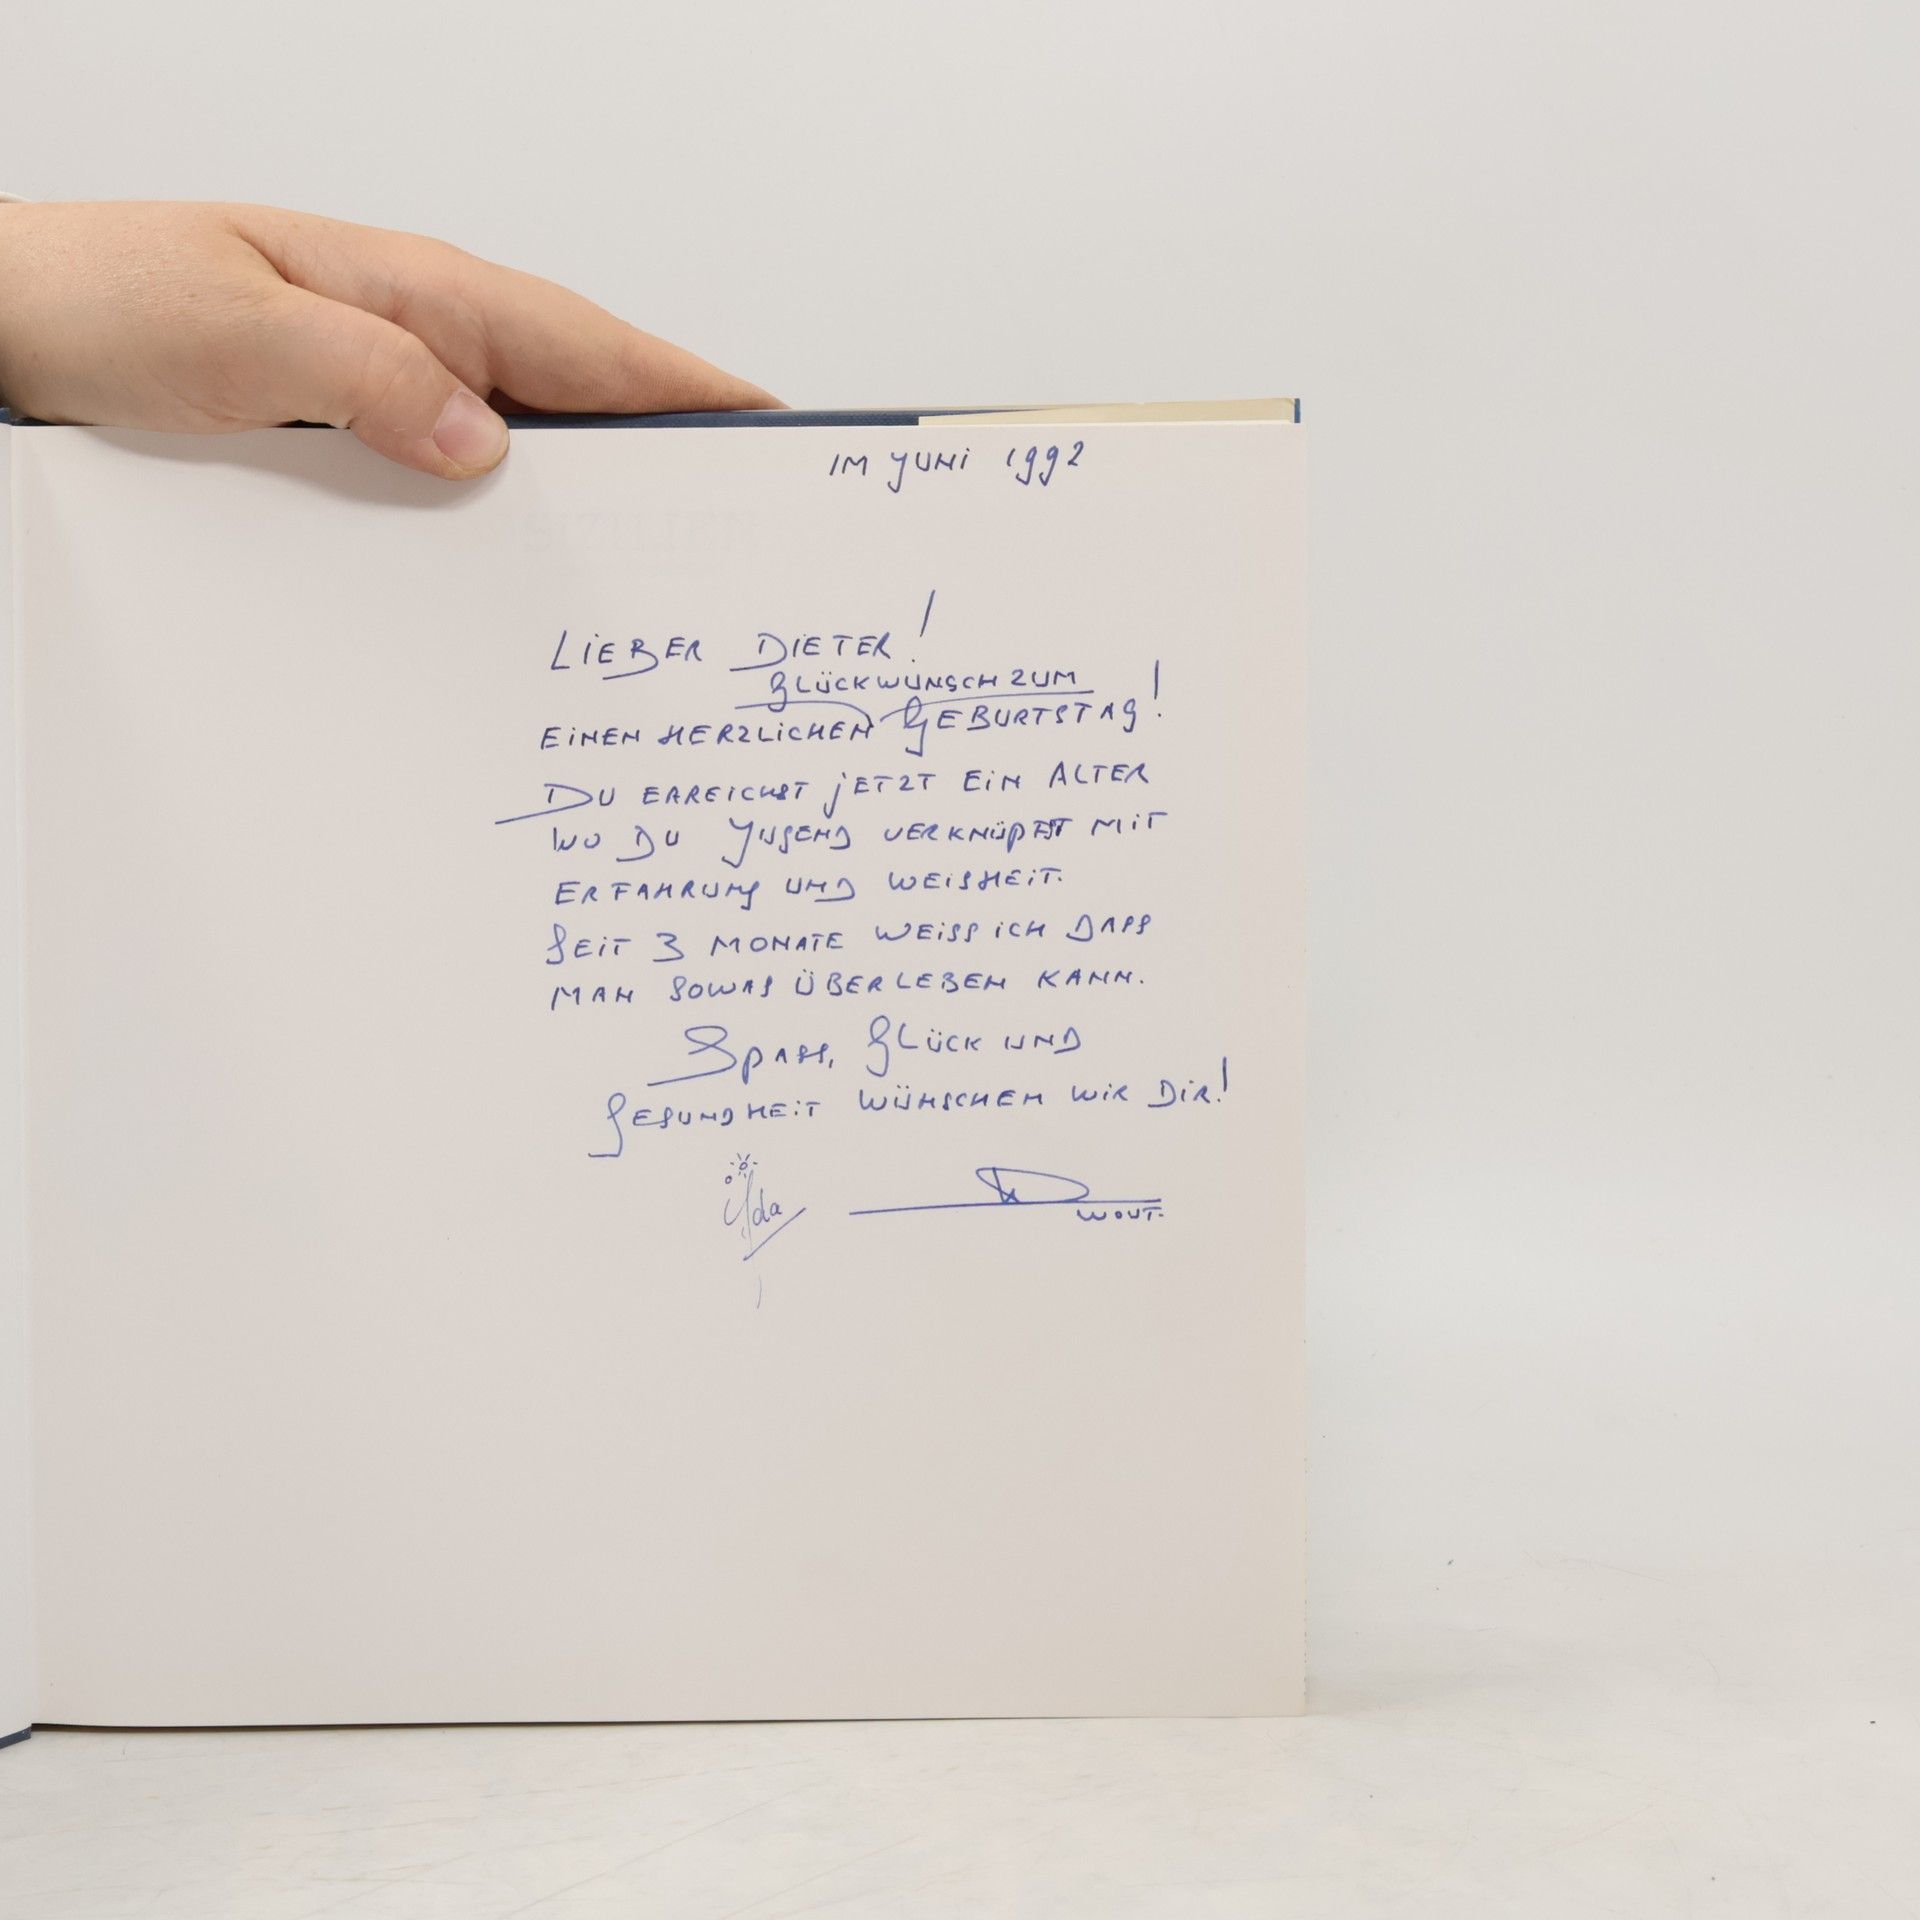 IM YUNI 1992
LIEBER DIETER!
GLÜCKWUNSCH ZUM
EINEN HERZLICHEN GEBURTSTAG!
DU ERREICHST JETZT EIN ALTER
WO DU YUGEND VERKNÜPFST MIT
ERFAHRUNG UND WEISHEIT.
SEIT 3 MONATE WEISS ICH DASS
MAN SOWAS ÜBERLEBEN KANN.
SPASS, GLÜCK UND
GESUNDHEIT WÜNSCHEN WIR DIR!
WOUT.